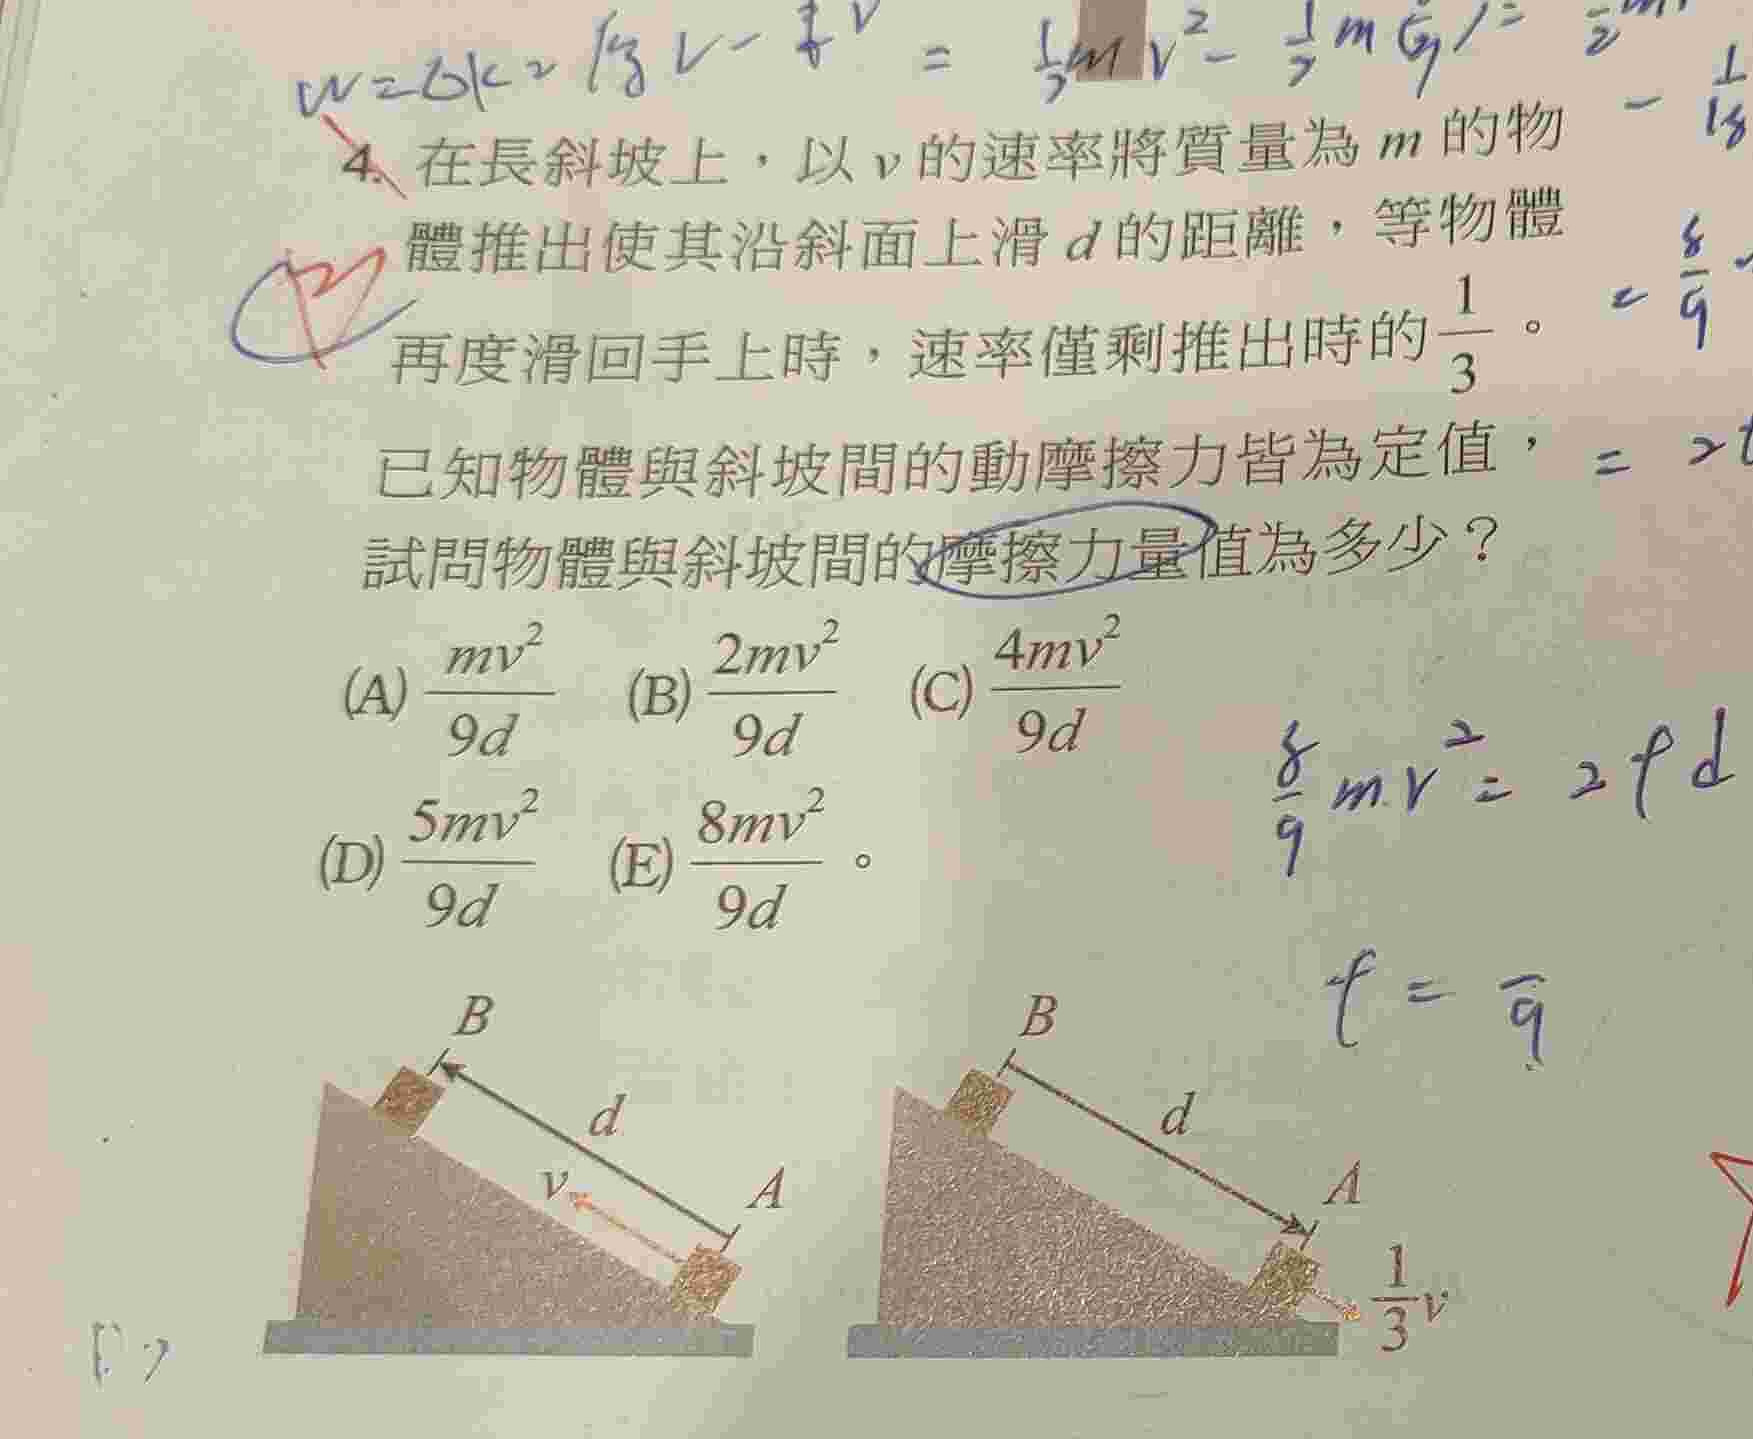 4. 在長斜坡上，以 v 的速率將質量為 m 的物
體推出使其沿斜面上滑 d 的距離，等物體
再度滑回手上時，速率僅剩推出時的 1/3 。
已知物體與斜坡間的動摩擦力皆為定值，
試問物體與斜坡間的摩擦力量值為多少？
(A) mv²/9d (B) 2mv²/9d (C) 4mv²/9d
(D) 5mv²/9d (E) 8mv²/9d 。
8/9 mv² = 2fd
f = /9
B B
d d
v A A
1/3 v